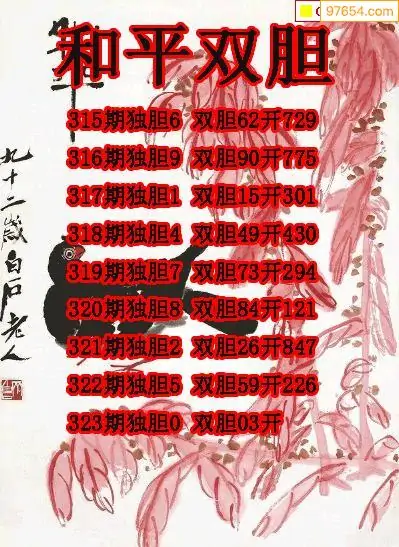 97654.com
和平双胆
315期独胆6 双胆62开729
316期独胆9 双胆90开775
317期独胆1 双胆15开301
318期独胆4 双胆49开430
319期独胆7 双胆73开294
320期独胆8 双胆84开121
321期独胆2 双胆26开847
322期独胆5 双胆59开226
323期独胆0 双胆03开
九十二岁白石老人